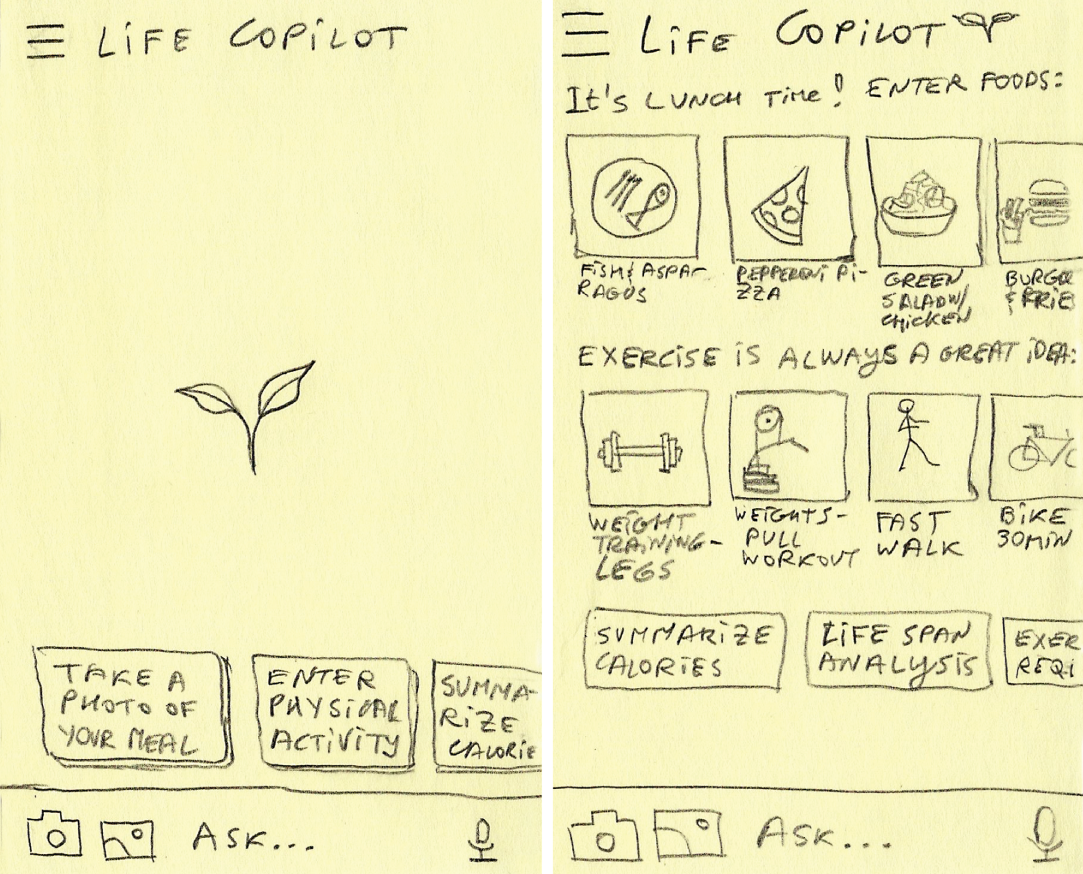 LiFE COPiLOT
TAKE A
PHOTO OF
YOUR MEAL
ENTER
PHYSICAL
ACTiViTY
SUMMA-
RiZE
CALORiE
ASK...
LiFE COPiLOT
It's LUNCH TiMe! ENTER FOODS:
FiSH & ASPA-
RAGUS
PEPPERONi Pi-
ZZA
GREEN
SALAD W/
CHiCKEN
BURGER
& FRiE
EXERCiSE iS ALWAYS A GREAT iDEA:
WEiGHT
TRAiNiNG-
LEGS
WEiGHTS-
PULL
WORKOUT
FAST
WALK
BiKE
30MiN
SUMMARiZE
CALORiES
LiFE SPAN
ANALYSiS
EXER
REQi
ASK...